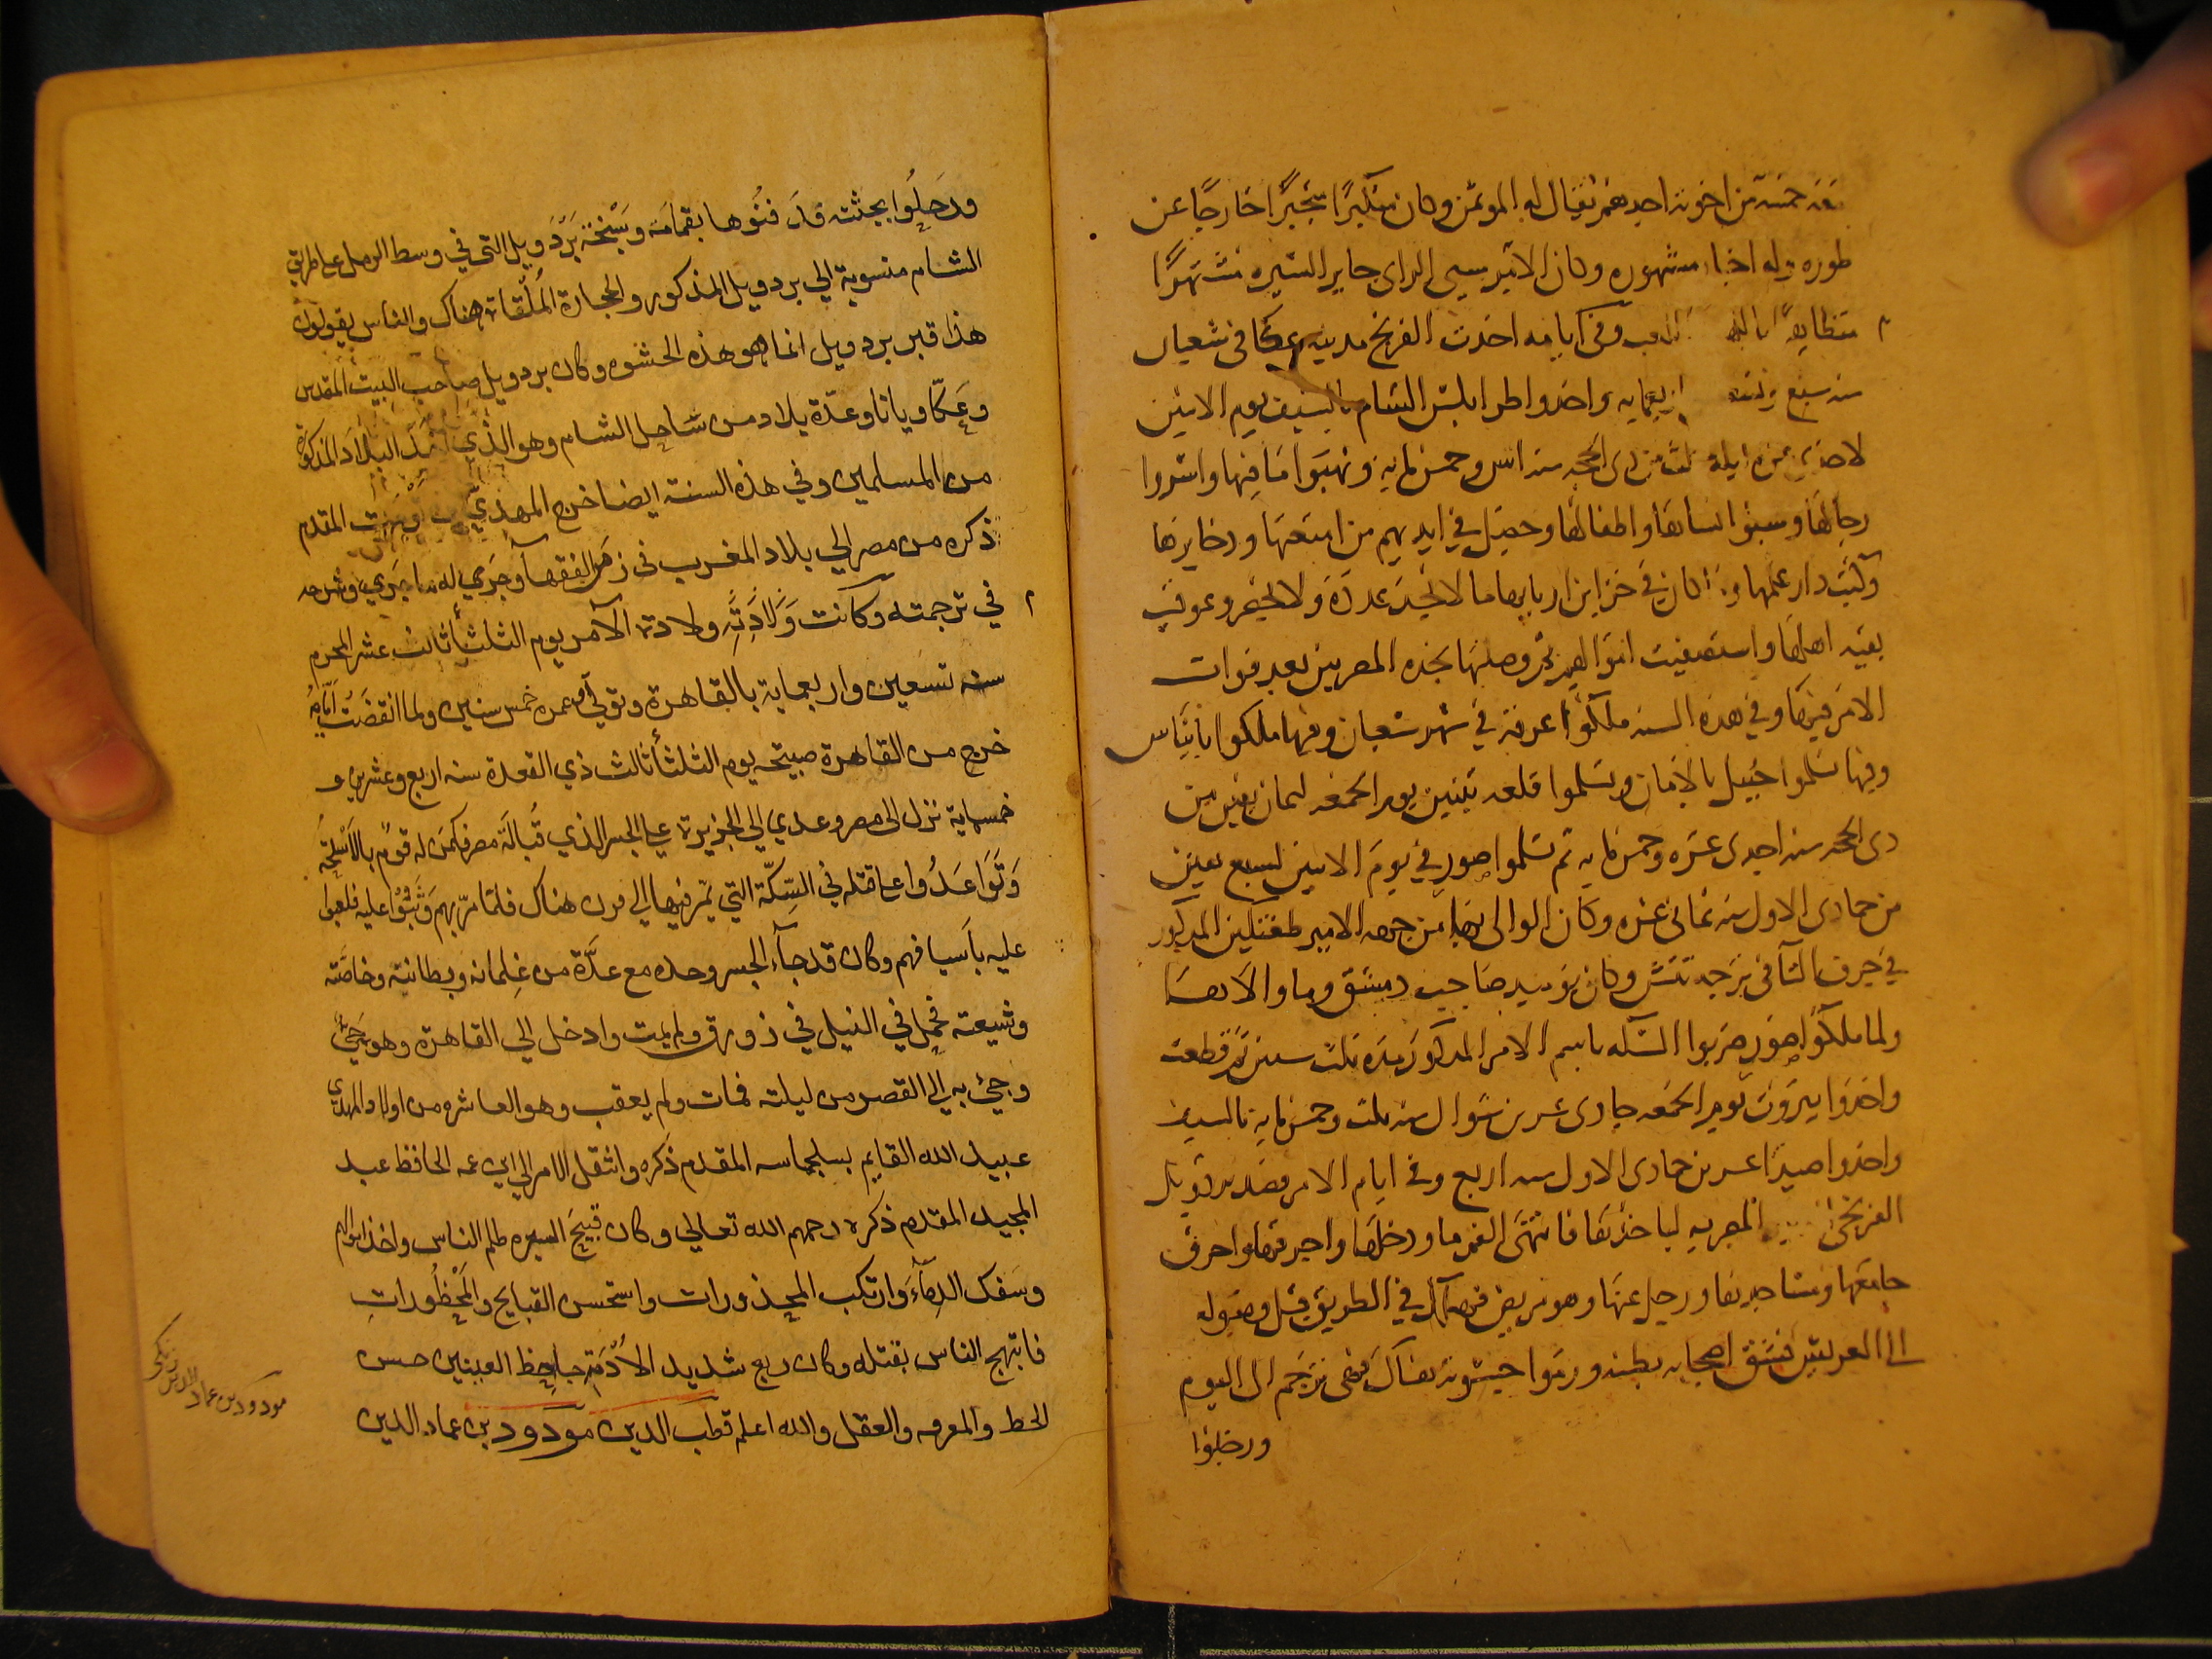 معه خمسة من اخوته احدهم يقال له الموتمن وكان متكبرًا متجبرًا خارجًا عن
طوره وله اخبار مشهوره وكان الامر سيى الراى جاير السيره مشتهرًا
متظاهرًا باللهو واللعب وفى ايامه اخذت الفرنج مدينة عكا فى شعبان
سنه سبع وتسعين واربعمايه واخذوا طرابلس الشام بالسيف يوم الاثنين
لاحدى عشره ليلة خلت من ذى الحجه سنه اثنين وخمسمايه ونهبوا ما فيها واسروا
رجالها وسبوا نساءها واطفالها وحصل في ايديهم من امتعتها وذخايرها
وكتب دار علمها وما كان في خزاين اربابها ما لا يحد عدده ولا يحصر وعوقب
بقيه اهلها واستصفيت اموالهم ثم وصلتها نجده المصريين بعد فوات
الامر فيها وفي هذه السنه ملكوا عرقة في شهر شعبان وفيها ملكوا بانياس
وفيها تسلموا جبيل بالامان وتسلموا قلعه تبنين يوم الجمعه لثمان بقين من
ذى الحجه سنه احدى عشره وخمسمايه ثم تسلموا صور في يوم الاثنين لسبع بقين
من جمادى الاول سنه ثمانى عشره وكان الوالى بها من جهه الامير طغتكين المذكور
في حرف التآ في ترجمة تتش وكان يوميد صاحب دمشق وما والاها
ولما ملكوا صور ضربوا السكه باسم الامر المذكور مده ثلث سنين ثم قطعت
واخذوا بيروت يوم الجمعه حادى عشرين شوال سنه ثلث وخمسمايه بالسيف
واخذوا صيدا عشرين جمادى الاول سنه اربع وفي ايام الامر قصد بردويل
الفرنجى المصريه لياخذها فانتهى الى الفرما ودخلها واحرقها واحرق
جامعها ومساجدها ورحل عنها وهو مريض فهلك في الطريق قبل وصوله
الى العريش فشق اصحابه بطنه ورموا حشوته هناك فهى ترجم الى اليوم
ودخلوا
ودَحلوا بجثته فدَفنوها بقمامَة وسَبْخَة بَرْدَويل التى في وسط الرمل على طريق
الشام منسوبة الي بردويل المذكور والحجارة المُلقاة هناك والناس يقولون
هذا قبر بردويل انما هو هذه الحشوه وكان بردويل صاحب البيت المقدس
وعَكّا ويافا وعدّة بلاد من سَاحل الشام وهو الذي اخذ البلاد المذكورة
من المسلمين وفي هذه السنة ايضا خرج المهدي بن تومرت المقدم
ذكره من مصر الي بلاد المغرب في زي الفقهآ وجري له ما جَري وشرحه
في ترجمته وكانت وَلادَته ولادة الآمر يوم الثلثأ ثالث عشر المحرم
سنه تسعين واربعماية بالقاهرة وتولي وعمره خمس سنين ولما انقضَت ايّامه
خرج من القاهرة صبيحه يوم الثلثأ ثالث ذي القعدة سنه اربع وعشرين و
خمسماية نزل الى مصر وعدي الي الجزيرة علي الجسر الذي قبالَة مصر فكمَن له قوم بالاسْلحَة
وَتَوَاعَدُوا على قتله في السّكّة التي يَمر فيها الي فرن هناك فلمّا مرّ بهم وَثَبُوا عليه فلعبوا
عليه باَسيافهم وكان قد جآءَ الجسر وحده مع عدَّة من غِلمانه وبطانته وخاصّته
وشيعته فحُمِل في النيل في زورق ولم يمت وادخل الي القاهرة وهو حَيٌّ
وجيء به الي القصر من ليلته فمات ولم يعقب وهو العاشره من اولاد المهدي
عبيد الله القايم بسلجماسه المقدم ذكره وانتقل الامر الي ابن عمه الحافظ عبد
المجيد المقدم ذكره رحمهم الله تعالي وكان قبيحَ السيره ظلم الناس واخذ اموالهم
وسَفك الدِمآءَ وَارتكب المحذورات واستحسن القبايح والمحْظُورات
فابتهج الناس بقتله وكان ربع شديد الأدْمَةِ جاحِظ العينين حسن
الخط والمعرفه والعقل والله اعلم قطب الدين مودود بن عماد الدين
مودود بن عماد الدين زنكي